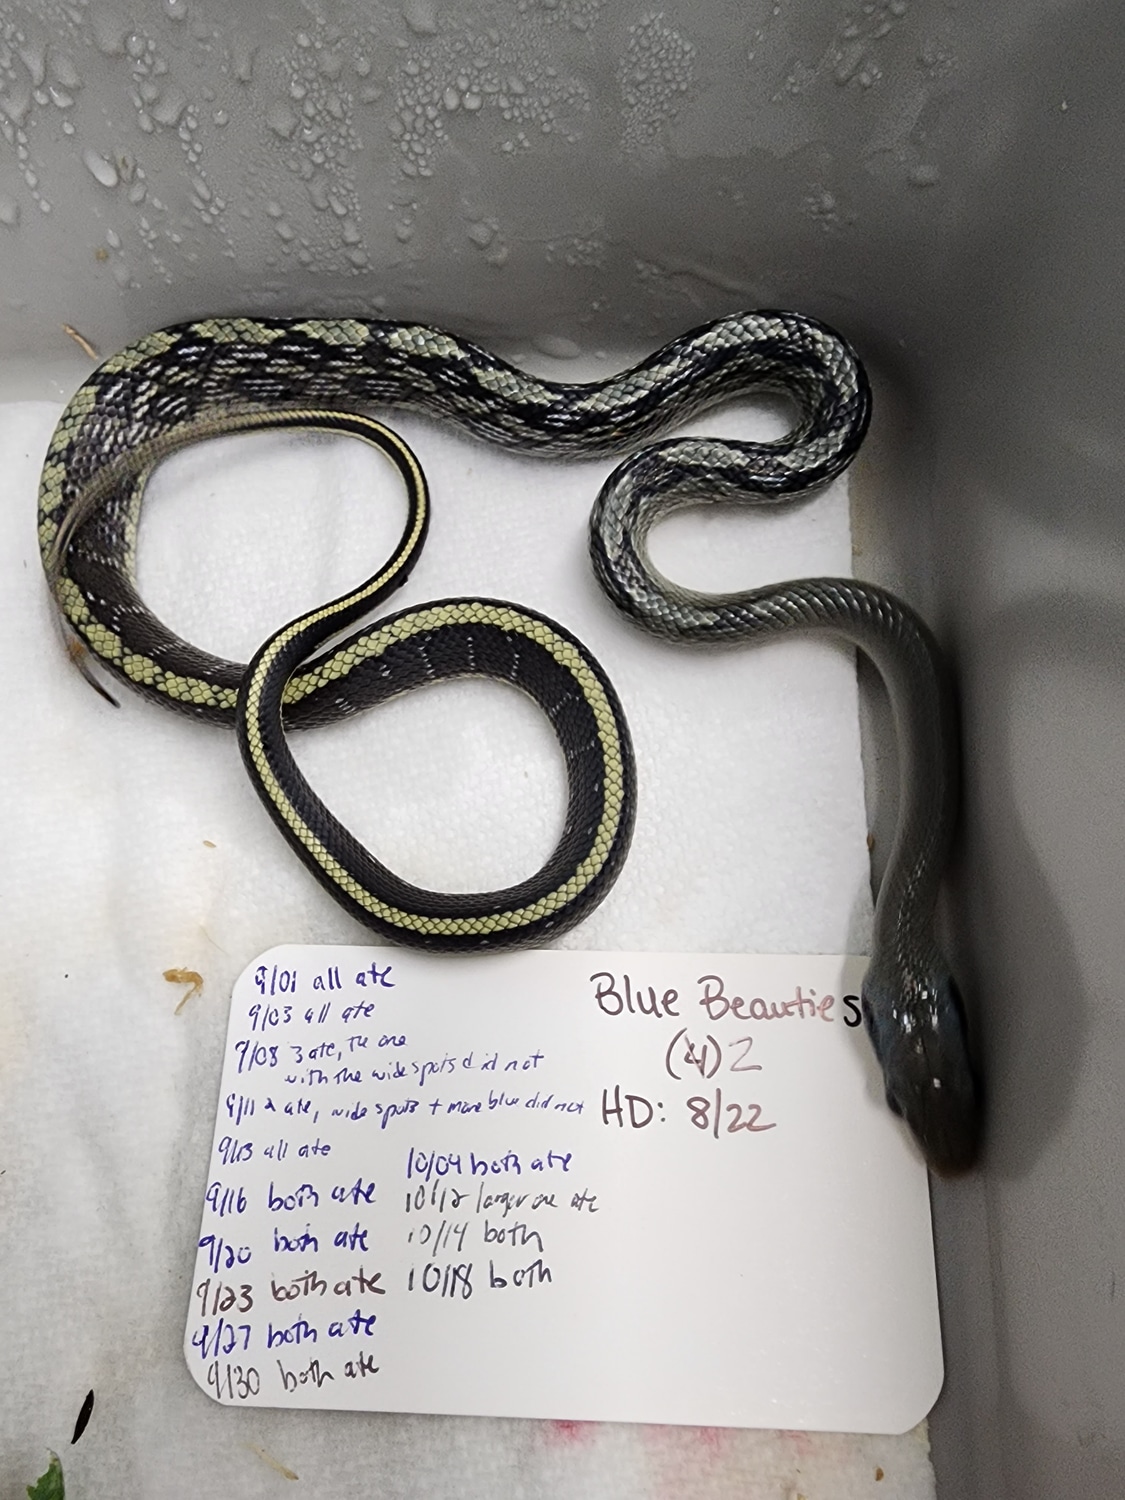 Blue Beauties
(4) 2
HD: 8/22
9/01 all ate
9/03 all ate
9/08 3 ate, the one
with the wide spots did not
9/11 2 ate, wide spots + more blue did not
9/13 all ate
9/16 both ate
9/20 both ate
9/23 both ate
9/27 both ate
9/30 both ate
10/04 both ate
10/12 larger one ate
10/14 both
10/18 both